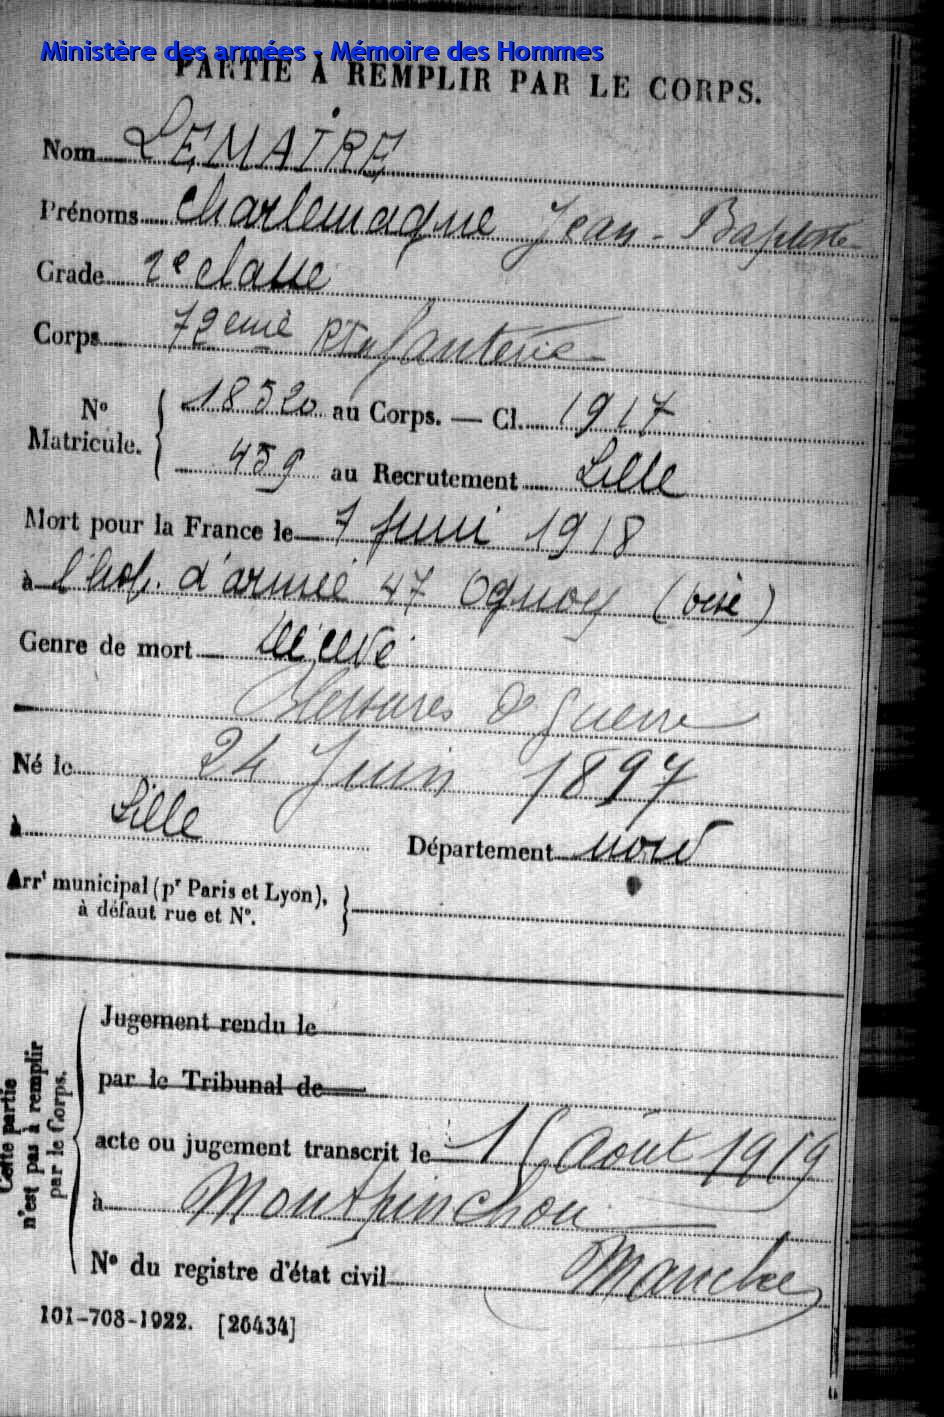 Ministère des armées - Mémoire des Hommes
PARTIE À REMPLIR PAR LE CORPS.
Nom LEMAIRE
Prénoms Charlemagne Jean-Baptiste
Grade 2e classe
Corps 72eme R Infanterie
No Matricule. { 18520 au Corps. — Cl. 1917
459 au Recrutement Lille
Mort pour la France le 7 Juin 1918
à l'hop. d'armée 47 Ognoy (oise)
Genre de mort
Blessures de guerre
Né le 24 Juin 1897
à Lille Département nord
Arrt municipal (pr Paris et Lyon), à défaut rue et No. }
Cette partie n'est pas à remplir par le Corps.
Jugement rendu le
par le Tribunal de
acte ou jugement transcrit le 15 Août 1919
à Montpinchon
No du registre d'état civil Manche
101-708-1922. [26434]